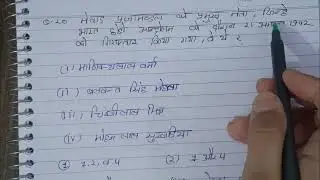 Q.20 मेवाड़ प्रजामण्डल के प्रमुख नेता, जिन्हें
भारत छोड़ो आन्दोलन के दौरान 21 अगस्त 1942
को गिरफ्तार किया गया, वे थे ?
(i) माणिक्यलाल वर्मा
(ii) बलवन्त सिंह मेहता
(iii)
(iv) मोहन लाल सुखाड़िया
(1) 1, 2, व 4 (2) 1 और 4